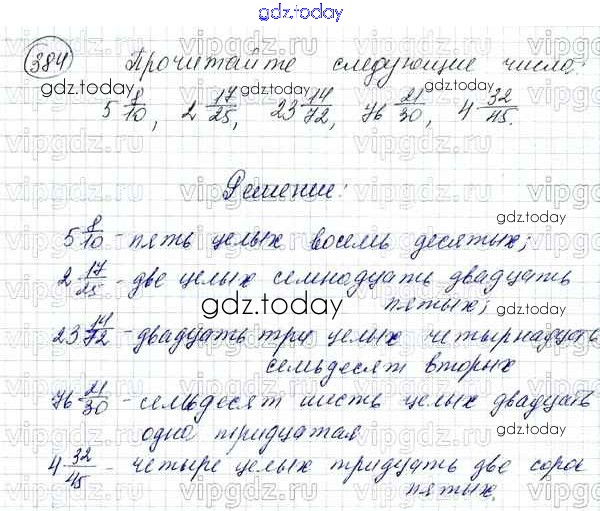 gdz.today
384 Прочитайте следующие числа:
5 8/10, 2 17/25, 23 14/72, 76 21/30, 4 32/45.
Решение:
5 8/10 - пять целых восемь десятых;
2 17/25 - две целых семнадцать двадцать
пятых;
23 14/72 - двадцать три целых четырнадцать
семьдесят вторых
76 21/30 - семьдесят шесть целых двадцать
одна тридцатая
4 32/45 - четыре целых тридцать две сорок
пятых.